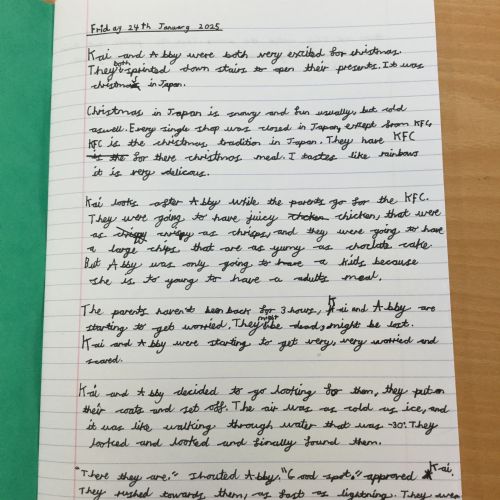 Friday 24th January 2025
Kai and Abby were both very excited for christmas.
They both sprinted down stairs to open their presents. It was
christmas in Japan.
Christmas in Japan is snowy and fun usually, but cold
aswell. Every single shop was closed in Japan, except from KFC,
KFC is the christmas tradition in Japan. They have KFC
is the for there christmas meal. I tastes like rainbows
it is very delicous.
Kai looks after Abby while the parents go for the KFC.
They were going to have juicy chicken chicken, that were
as crispy as chrisps, and they were going to have
a large chips that are as yumy as choclate cake.
But Abby was only going to have a kids because
she is to young to have a adults meal.
The parents haven't been back for 3 hours, Kai and Abby are
starting to get worried. They might be dead, might be lost.
Kai and Abby were starting to get very, very worried and
scared.
Kai and Abby decided to go looking for them, they put on
their coats and set off. The air was as cold as ice, and
it was like walking through water that was -30°. They
looked and looked and finally found them.
"There they are." Shouted Abby. "Good spot." approved Kai.
They rushed towards them, as fast as lightning. They were